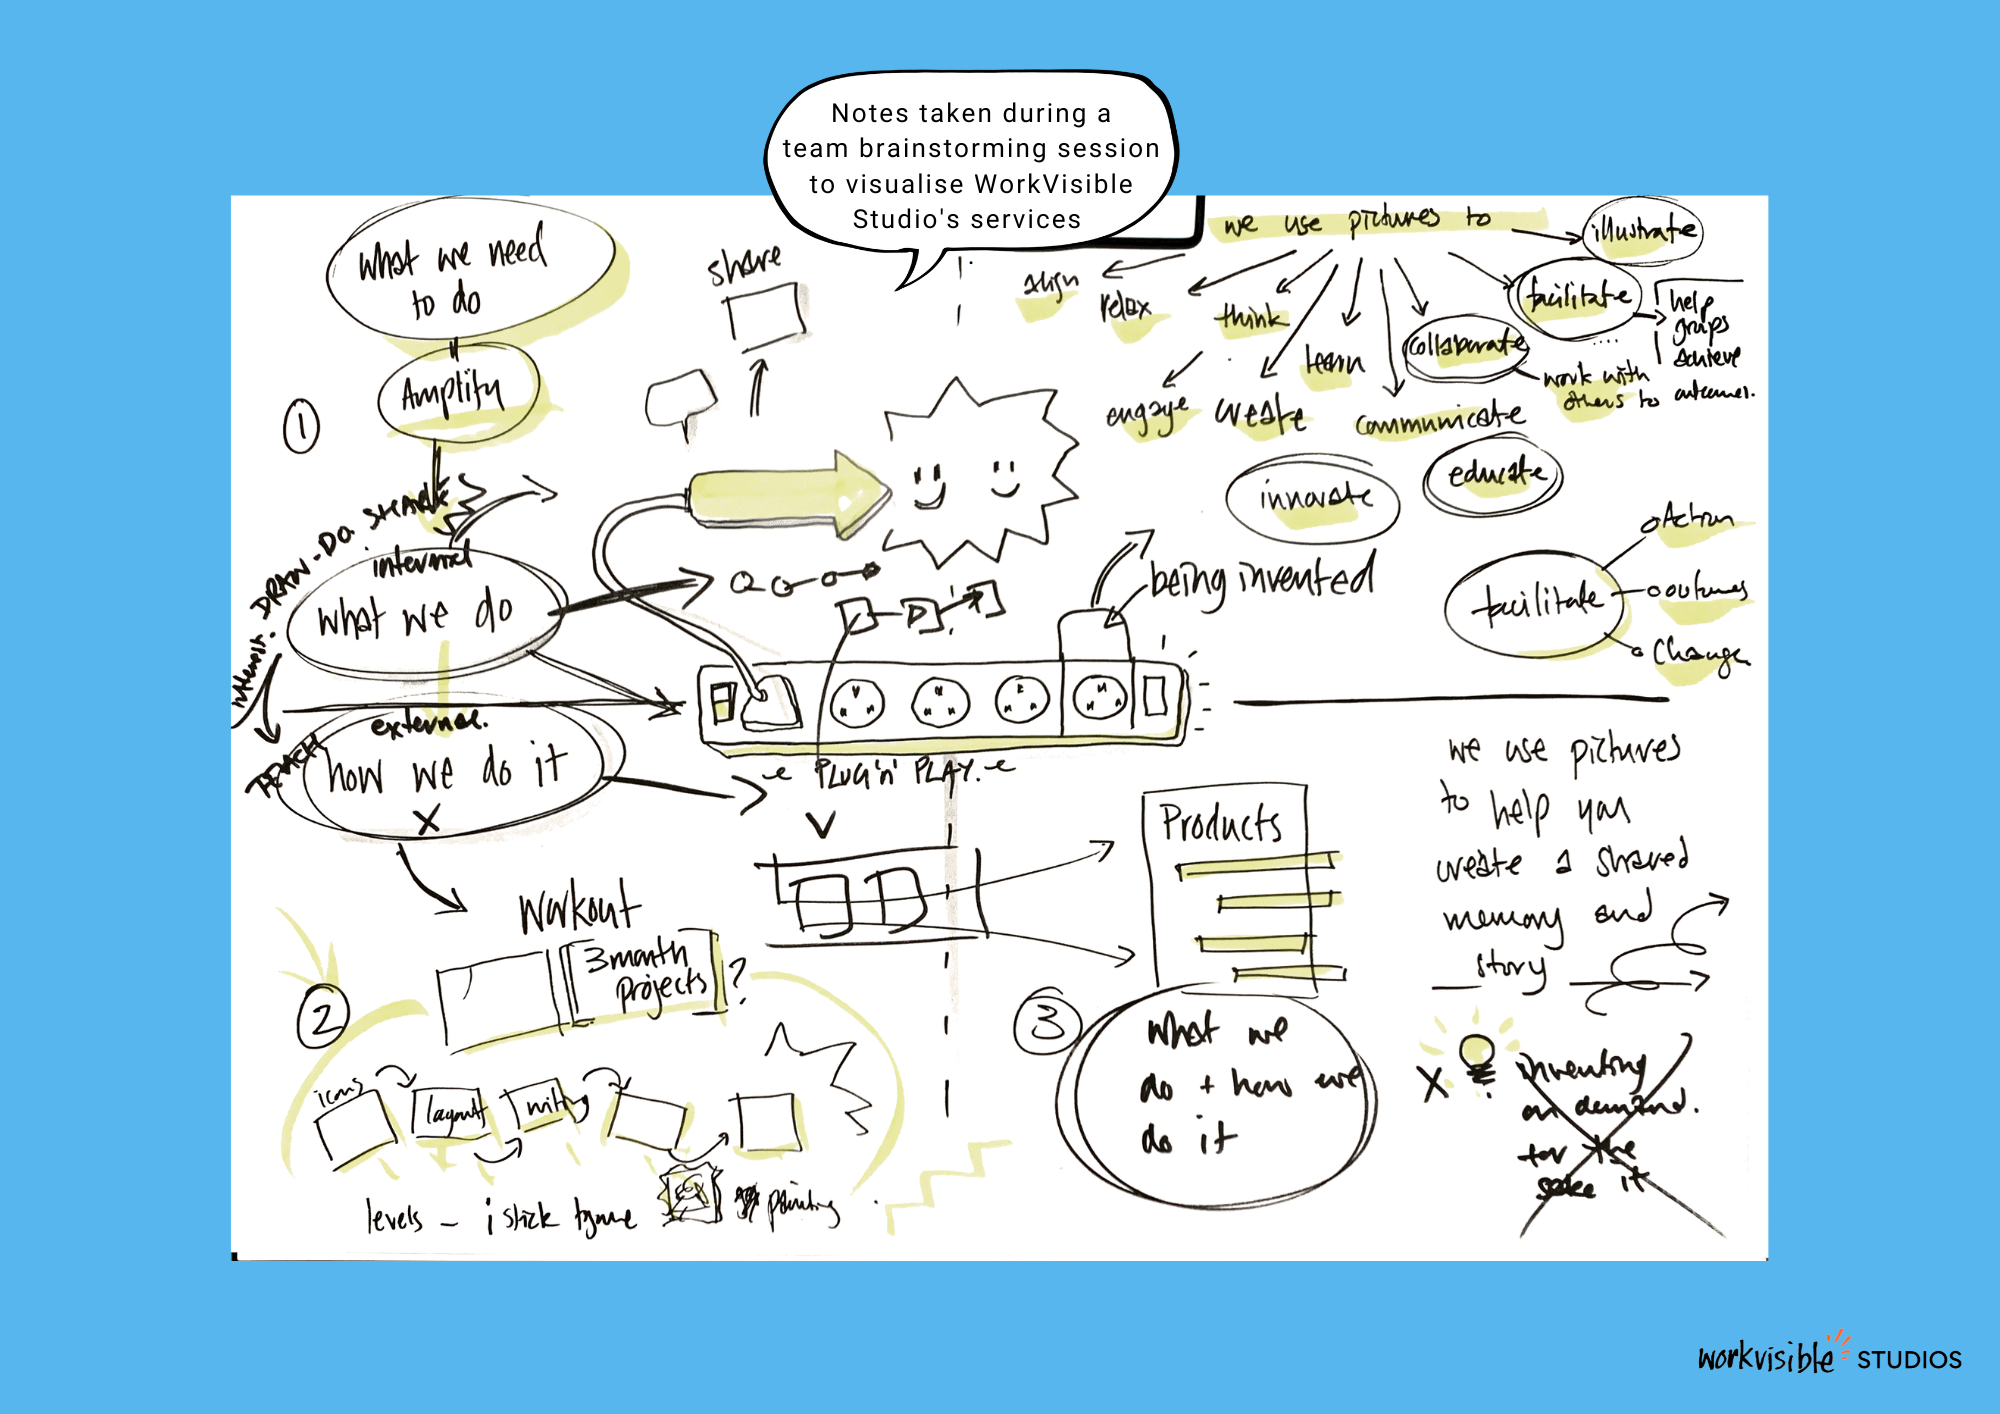 Notes taken during a
team brainstorming session
to visualise WorkVisible
Studio's services
what we need
to do
Amplify
1
share
internal
what we do
DRAW-DO.
external.
how we do it
x
TEACH
PLUG'n' PLAY.
being invented
we use pictures to
illustrate
align
relax
think
learn
collaborate
facilitate
help
groups
achieve
outcomes.
work with
others to
engage
create
communicate
innovate
educate
facilitate
Action
outcomes
Change
we use pictures
to help you
create a shared
memory and
story
Workout
3 month
projects
?
2
icons
layout
levels -
painting
Products
3
what we
do + how we
do it
X
inventing
on demand.
for the
sake it
workvisible STUDIOS